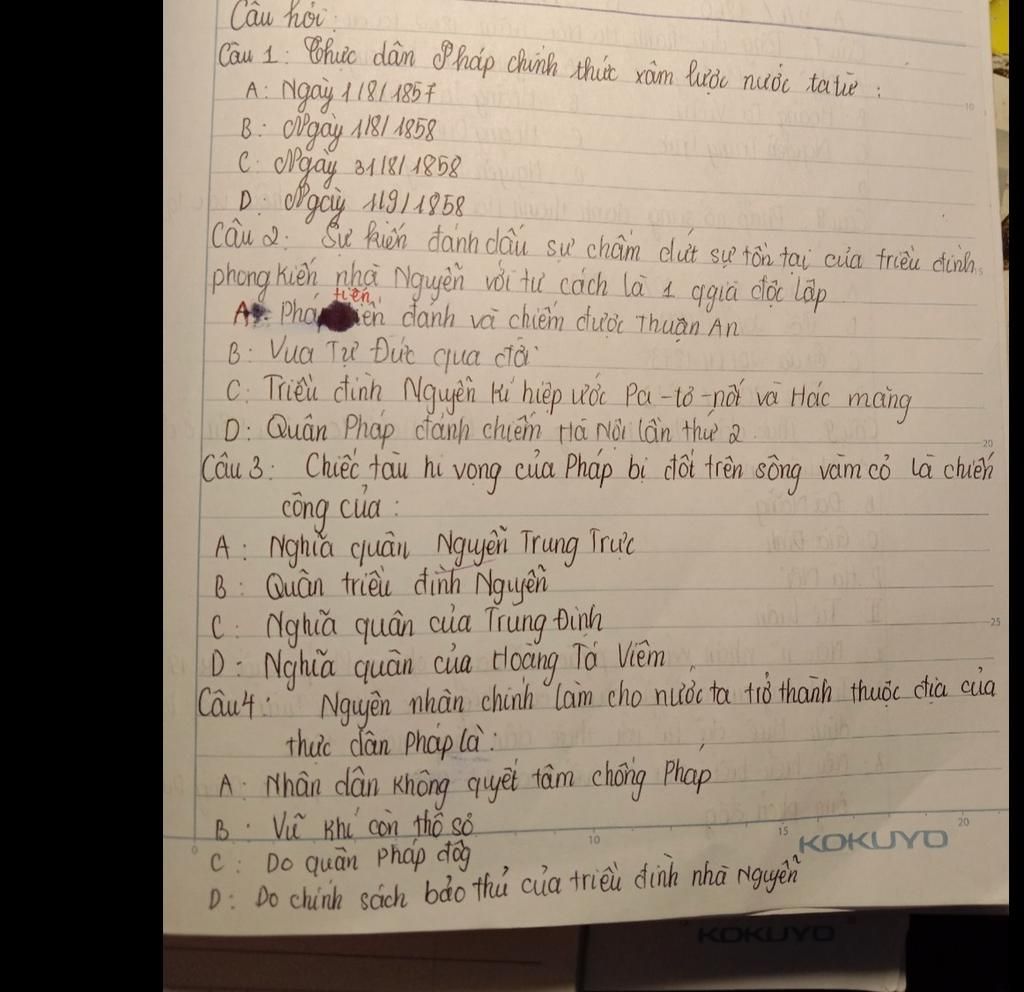 Câu hỏi:
Câu 1: Thực dân Pháp chính thức xâm lược nước ta từ :
A: Ngày 1/8/1857
B: Ngày 1/8/1858
C: Ngày 31/8/1858
D: Ngày 1/9/1858
Câu 2: Sự kiến đánh dấu sự chấm dứt sự tồn tại của triều đình
phong kiến nhà Nguyễn với tư cách là 1 qgia độc lập
tiến
A: Pháp đánh và chiếm được Thuận An
B: Vua Tự Đức qua đời
C: Triều đình Nguyễn kí hiệp ước Pa-tơ-nốt và Hác măng
D: Quân Pháp đánh chiếm Hà Nội lần thứ 2.
20
Câu 3: Chiếc tàu hi vọng của Pháp bị đốt trên sông vàm cỏ là chiến
công của :
A: Nghĩa quân Nguyễn Trung Trực
B: Quân triều đình Nguyễn
C: Nghĩa quân của Trung Định
25
D: Nghĩa quân của Hoàng Tá Viêm
Câu 4: Nguyên nhân chính làm cho nước ta trở thành thuộc địa của
thực dân Pháp là:
A: Nhân dân không quyết tâm chống Pháp
B: Vũ khí còn thô sơ
0 10 15 20
KOKUYO
C: Do quân Pháp đôg
D: Do chính sách bảo thủ của triều đình nhà Nguyễn
KOKUYO